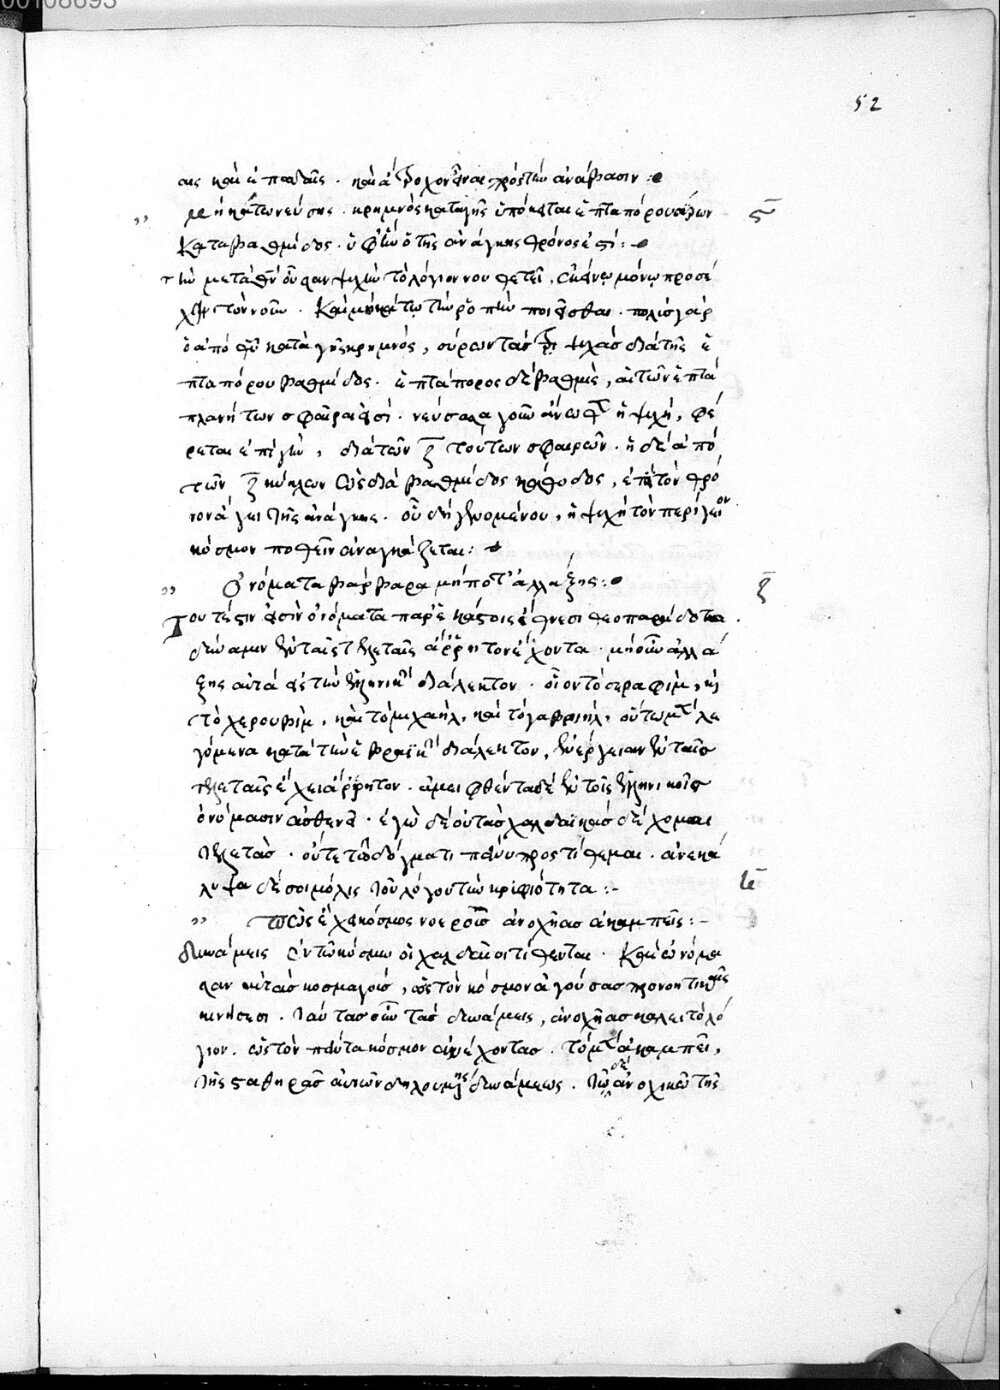 00108693
52
αις καὶ ἐπῳδαῖς . καὶ ἄτροχον εἶναι πρὸς τὴν ἀνάβασιν :
μὴ κάτω νεύσῃς . κρημνὸς κατὰ γῆς ὑπόκειται ἑπταπόρου σύρων ς
κατὰ βαθμίδος . ὑφ' ἣν ὁ τῆς ἀνάγκης θρόνος ἐστί :
τὴν μετὰ θεοῦ οὖσαν ψυχὴν τὸ λόγιον νουθετεῖ , ἐκείνῳ μόνῳ προσέ
χειν τὸν νοῦν . καὶ μὴ κάτω τὴν ῥοπὴν ποιεῖσθαι . πολὺς γὰρ
ὁ ἀπὸ θεοῦ κατὰ γῆς κρημνός , σύρων τὰς ψυχὰς διὰ τῆς ἑ
πταπόρου βαθμίδος . ἑπτάπορος δὲ βαθμὶς , αἱ τῶν ἑπτὰ
πλανήτων σφαῖραί εἰσι . νεύσασα γοῦν ἄνωθεν ἡ ψυχή , φέ
ρεται ἐπὶ γῆν , διὰ τῶν ζ τούτων σφαιρῶν . ἡ δὲ ἀπὸ
τῶν ζ κύκλων ὡς διὰ βαθμίδος κάθοδος , ἐπὶ τὸν θρό
νον ἄγει τῆς ἀνάγκης . οὗ δὴ γενομένου , ἡ ψυχὴ τὸν περίγειον
κόσμον ποθεῖν ἀναγκάζεται :
Ὀνόματα βάρβαρα μήποτ' ἀλλάξῃς : ζ
Τουτέστιν εἰσὶν ὀνόματα παρ' ἑκάστοις ἔθνεσι θεοπαράδοτα .
δύναμιν ἐν ταῖς τελεταῖς ἄρρητον ἔχοντα . μὴ οὖν ἀλλά
ξῃς αὐτὰ εἰς τὴν ἑλληνικὴν διάλεκτον . οἷον τὸ σεραφὶμ , καὶ
τὸ χερουβὶμ , καὶ τὸ μιχαὴλ , καὶ τὸ γαβριὴλ . οὕτω μὲν λε
γόμενα κατὰ τὴν ἑβραϊκὴν διάλεκτον , ἐνέργειαν ἐν ταῖς
τελεταῖς ἔχει ἄρρητον . ἀμειφθέντα δὲ ἐν τοῖς ἑλληνικοῖς
ὀνόμασιν ἀσθενεῖ . ἐγὼ δὲ οὔτε τὰς χαλδαϊκὰς δέχομαι
τελετάς . οὔτε τῷ δόγματι πάνυ προστίθεμαι . ἀνεκά
λυψα δέ σοι μόλις τοῦ λόγου τὴν κρυφιότητα :
ὡς ἔχει κόσμος νοεροὺς ἀνοχῆας ἀκαμπεῖς : ιε
δυνάμεις ἐν τῷ κόσμῳ οἱ χαλδαῖοι τίθενται . καὶ ὠνόμα
σαν αὐτὰς κοσμαγοὺς , ὡς τὸν κόσμον ἀγούσας προνοητικαῖς
κινήσεσι . ταύτας οὖν τὰς δυνάμεις , ἀνοχῆας καλεῖ τὸ λό
γιον . ὡς τὸν πάντα κόσμον ἀνέχοντας . τὸ μὲν ἀκαμπεῖ ,
τῆς σταθηρᾶς αὐτῶν δηλουμένης δυνάμεως . τῷ δὲ ἀνοχικῷ τῆς